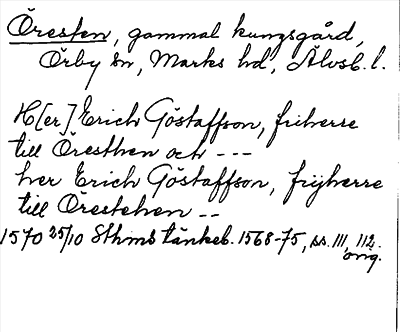 Öresten, gammal kungsgård,
Örby sn, Marks hd, Älvsb. l.
H[er] Erich Göstaffson, friherre
till Öresthen och ---
her Erich Göstaffson, frijherre
till Örestehen --
1570 25/10 Sthms tänkeb. 1568-75, ss. 111, 112.
orig.